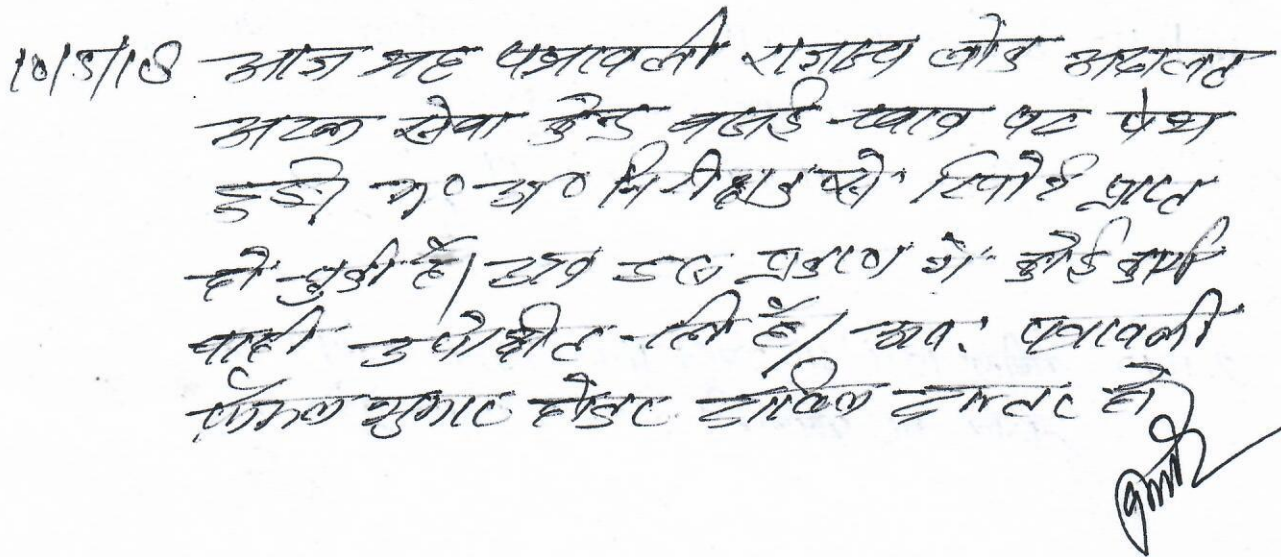 10/5/18 आज यह पत्रावली राजस्व लोक अदालत
अटल सेवा केन्द्र पर पेश
हुई। भू० अ० निरीक्षक से रिपोर्ट प्राप्त
हो चुकी है। अब इस प्रकरण में कोई कार्य
वाही अपेक्षित नहीं है। अतः पत्रावली
फैसल शुमार होकर दाखिल दफ्तर हो